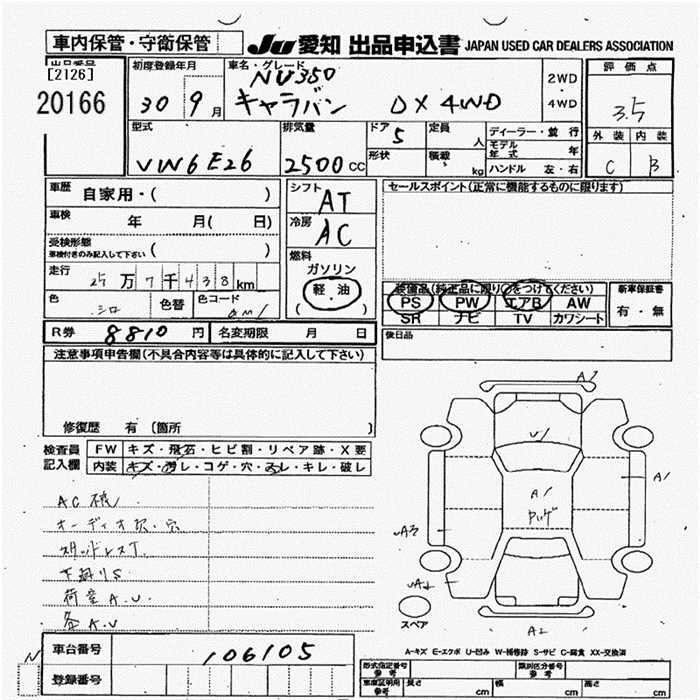 車内保管・守衛保管 JU 愛知 出品申込書 JAPAN USED CAR DEALERS ASSOCIATION
出品番号
[2126]
20166
初度登録年月
30 9月
車名・グレード
NV350
キャラバン DX 4WD
2WD
・
4WD
評価点
3.5
外装 内装
C B
型式
VW6E26
排気量
2500CC
ドア
5
形状
定員
人
積載
kg
ディーラー・並行
モデル年式 年
ハンドル 左・右
車歴
自家用・( )
車検
年 月( 日)
受検形態
車検付きのみ記入して下さい ( )
走行
25万7千438km
色
シロ
色替
色コード
シフト
AT
冷房
AC
燃料
ガソリン
軽・油
( )
セールスポイント(正常に機能するものに限ります)
装備品(純正品に限り○をつけてください)
PS PW エアB AW
SR ナビ TV カワシート
新車保証書
有・無
後日品
R券 8810円 名変期限 月 日
注意事項申告欄(不具合内容等は具体的に記入して下さい)
修復歴 有 (箇所 )
検査員
記入欄
FW キズ・飛石・ヒビ割・リペア跡・X要
内装 キズ・汚レ・コゲ・穴・スレ・キレ・破レ
AC
オーディオ穴・穴
下廻りS
荷室A.U
A.U
A1
U1
A1
A1
A3
A2
A2
スペア
A-キズ E-エクボ U-凹み W-補修跡 S-サビ C-腐食 XX-交換済
車台番号 106105
登録番号
型式指定番号
参考
類別区分番号
参考
車庫証明用
参考
長さ cm 幅 cm 高さ cm